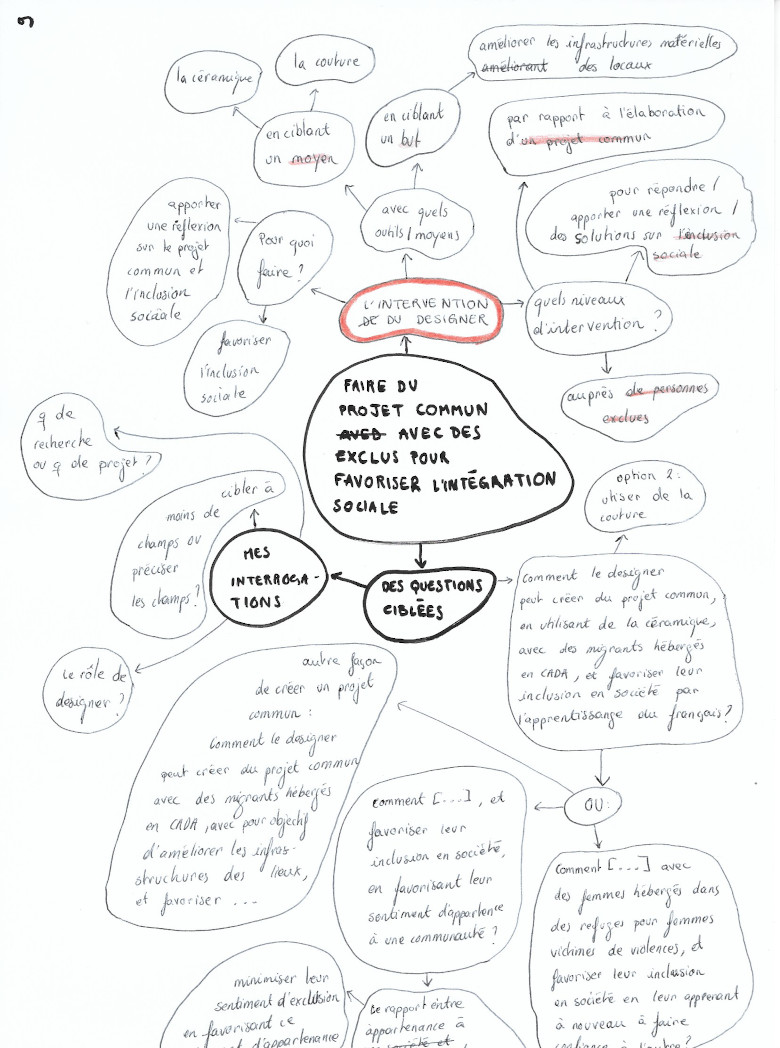 la céramique
la couture
améliorer les infrastructures matérielles
améliorant des locaux
en ciblant
un moyen
en ciblant
un but
par rapport à l'élaboration
d'un projet commun
avec quels
outils/moyens
pour répondre /
apporter une réflexion /
des solutions sur l'inclusion
sociale
apporter
une réflexion
sur le projet
commun et
l'inclusion
sociale
Pour quoi
faire ?
L'INTERVENTION
DE DU DESIGNER
quels niveaux
d'intervention ?
favoriser
l'inclusion
sociale
auprès de personnes
exclues
FAIRE DU
PROJET COMMUN
AVED AVEC DES
EXCLUS POUR
FAVORISER L'INTÉGRATION
SOCIALE
q de
recherche
ou q de projet ?
cibler à
moins de
champs ou
préciser
les champs ?
MES
INTERROGA-
TIONS
DES QUESTIONS
CIBLÉES
option 2 :
utiser de la
couture
Comment le designer
peut créer du projet commun,
en utilisant de la céramique,
avec des migrants hébergés
en CADA, et favoriser leur
inclusion en société par
l'apprentissange du français ?
Le rôle de
designer ?
autre façon
de créer un projet
commun :
Comment le designer
peut créer du projet commun
avec des migrants hébergés
en CADA, avec pour objectif
d'améliorer les infras-
structures des lieux,
et favoriser ...
OU :
Comment [...], et
favoriser leur
inclusion en société,
en favorisant leur
sentiment d'appartence
à une communauté ?
Comment [...] avec
des femmes hébergés dans
des refuges pour femmes
victimes de violences, et
favoriser leur inclusion
en société en leur apprenant
à nouveau à faire
confiance à l'autre ?
minimiser leur
sentiment d'exclusion
en favorisant ce
d'appartenance
Le rapport entre
appartenance à
société et